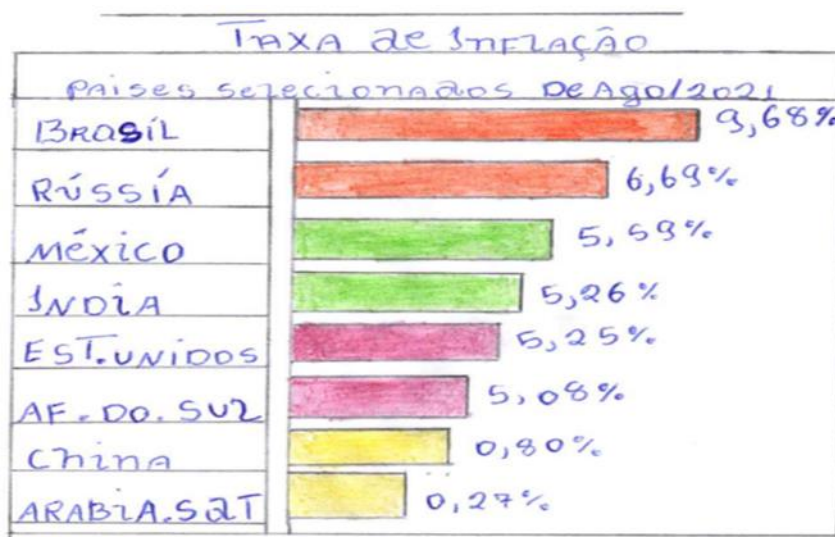 TAXA de INFLAÇÃO
PAISES SELECIONADOS DE AGO/2021
BRASÍL 9,68%
RÚSSÍA 6,69%
MÉXICO 5,59%
INDIA 5,26%
EST.UNIDOS 5,25%
AF.DO.SUL 5,08%
China 0,80%
ARABIA.SAT 0,27%